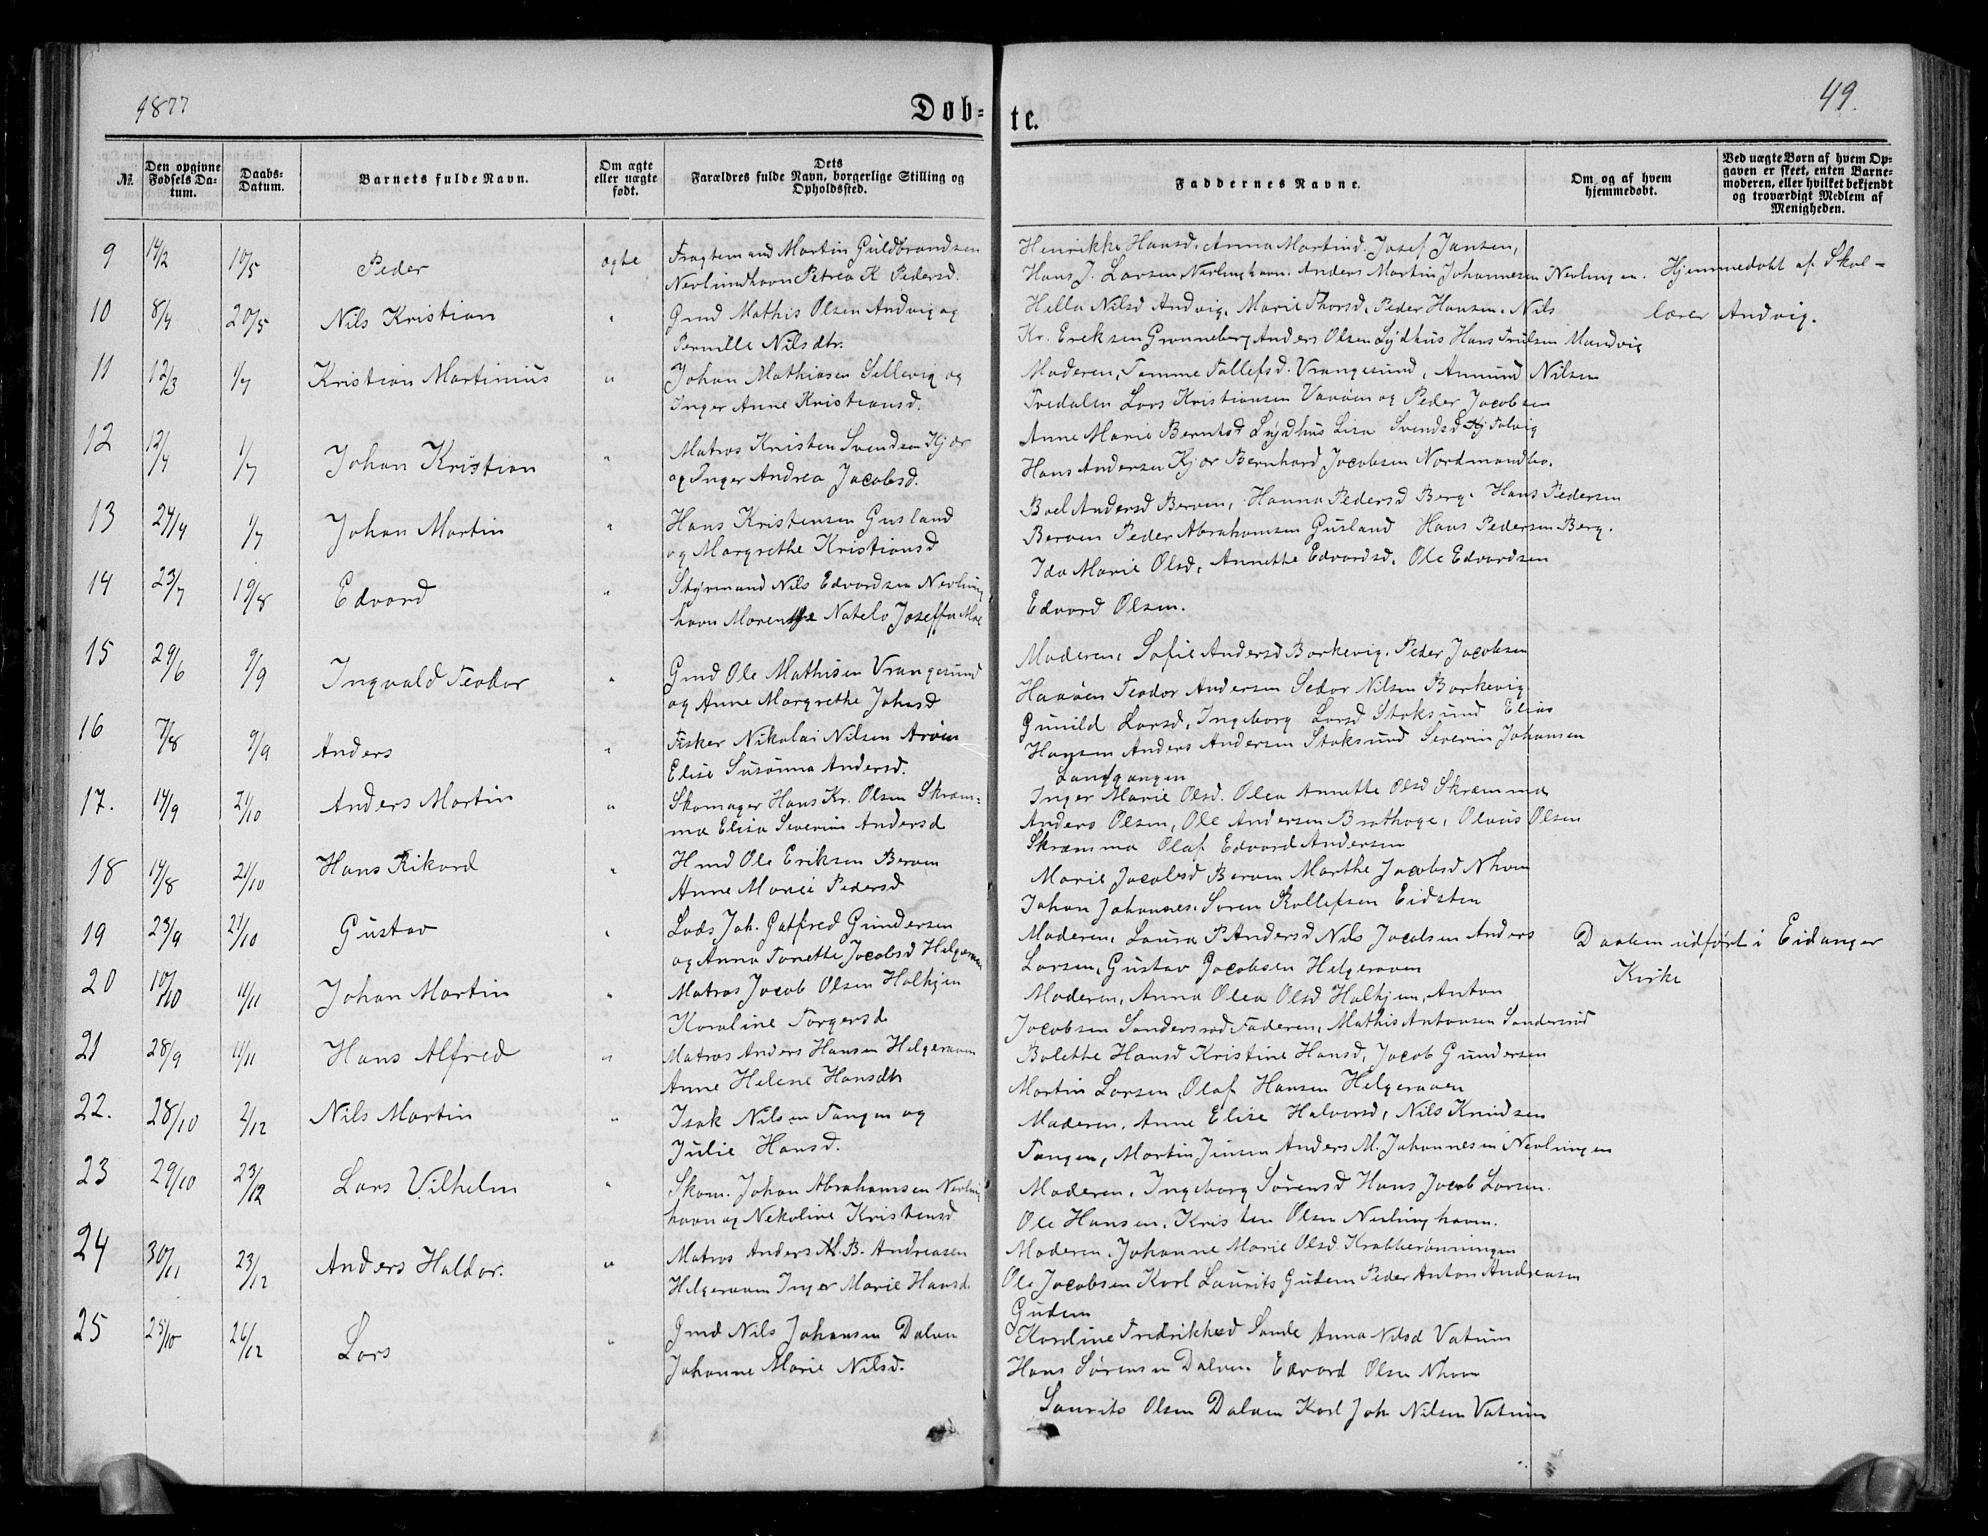 1877
Døb-
te.
49.
№.
Den opgivne Fødsels Da-tum.
Daabs-Datum.
Barnets fulde Navn.
Om ægte eller uægte født.
Dets Forældres fulde Navn, borgerlige Stilling og Opholdssted.
Faddernes Navne.
Om og af hvem hjemmedøbt.
Ved uægte Børn af hvem Op-gaven er skeet, enten Barne-moderen, eller hvilket bekjendt og troværdigt Medlem af Menigheden.
9 14/2 10/5 Peder ægte Fragtemand Martin Guldbrandsen
Nevlunghavn Petrea K Pedersd.
Henrikke Hansd. Anna Martind. Josef Jansen,
Hans J. Larsen Nevlinghavn. Anders Martin Johannesen Nevlingen. Hjemmedøbt af Skol-
lærer Andvig.
10 8/4 20/5 Nils Kristian " Gmd Mathis Olsen Andvig og
Pernille Nilsdtr.
Hella Nilsd Andvig, Marie Thorsd, Peder Hansen. Nils
Kr. Eriksen Grønneberg Anders Olsen Lydhus Hans Trulsen Mandvig
11 12/3 1/7 Kristian Martinius " Johan Mathiasen Sillevig og
Inger Anne Kristiansd.
Moderen, Tomme Tollefsd. Vrangesund, Anmund Nilsen
Tredalen Lars Kristiansen Vaøen og Peder Jacobsen
12 12/4 1/7 Johan Kristian " Matros Kristen Svendsen Kjær
og Inger Andrea Jacobsd.
Anne Marie Berntsd Lydhus Lisa Svendsd
Hans Andersen Kjær Bernhard Jacobsen Nordmandbo.
13 24/4 1/7 Johan Martin " Hans Kristensen Gusland
og Margrethe Kristiansd
Boel Andersd Berven, Hanna Pedersd Berg. Hans Pedersen
Berven Peder Abrahamsen Gusland Hans Pedersen Berg.
14 23/7 19/8 Edvard " Styrmand Nils Edvardsen Nevlung
havn Morenthe Natelo Joseffa Moe
Ida Marie Olsd, Annethe Edvardsd, Ole Edvardsen
Edvard Olsen.
15 29/6 9/9 Ingvald Teodor " Gmd Ole Mathisen Vrangesund
og Anne Margrethe Johnsd
Moderen, Sofie Andersd Barkevig. Peder Jacobsen
Haaøen Teodor Andersen Sedor Nilsen Barkevig
16 7/8 9/9 Anders " Fisker Nikolai Nilsen Arøen
Elise Susanna Andersd.
Gunild Larsd, Ingeborg Larsd Stoksund Elias
Hansen Anders Andersen Stoksund Severin Johansen
Landgangen
17. 14/9 21/10 Anders Martin " Skomager Hans Kr. Olsen Skræm-
ma Elisa Severine Andersd
Inger Marie Olsd. Olea Annette Olsd Skræmma
Anders Olsen, Ole Andersen Brathage, Olaus Olsen
Skræmma Olaf Edvard Andersen
18 14/8 21/10 Hans Rikard " Hmd Ole Eriksen Berven
Anne Marie Pedersd
Marie Jacobsd Berven Marthe Jacobsd Nhavn
Johan Johannes. Søren Rollefsen Eidsten
19 23/9 21/10 Gustav " Lods Joh. Gotfred Gundersen
og Anna Tonette Jacobsd Helgeraaen
Moderen, Laura P Andersd Nils Jacobsen Anders
Larsen, Gustav Jacobsen Helgeraaen
Daaben udført i Eidanger
Kirke
20 10/10 11/11 Johan Martin " Matros Jacob Olsen Halhjem
Karoline Torgersd
Moderen, Anna Olea Olsd Halhjem, Anton
Jacobsen Sandersrød Faderen, Mathis Antonsen Sandersrød
21 28/9 11/11 Hans Alfred " Matros Anders Hansen Helgeraaen
Anne Helene Hansdtr
Bolethe Hansd Kristine Hansd, Jacob Gundersen
Martin Larsen, Olaf Hansen Helgeraaen
22. 28/10 2/12 Nils Martin " Isak Nilsen Tangen og
Julie Hansd.
Moderen. Anne Elise Halvorsd, Nils Knudsen
Tangen, Martin Jensen Anders M. Johannesen Nevlingen
23 29/10 23/12 Lars Vilhelm " Skom. Johan Abrahamsen Nevling
havn og Nekoline Kristensd.
Moderen, Ingeborg Sørensd Hans Jacob Larsen.
Ole Hansen, Kristen Olsen Nevlinghavn.
24 30/11 23/12 Anders Haldor. " Matros Anders M. B. Andreasen
Helgeraaen Inger Marie Hansd.
Moderen. Johanne Marie Olsd Krabberønningen
Ole Jacobsen Karl Laurits Gudem Peder Anton Andreasen
Gudem
25 25/10 26/12 Lars " Gmd Nils Johansen Dalen
Johanne Marie Nilsd.
Karoline Fredrikhsd Sande Anna Nilsd Vatum
Hans Sørensen Dalen. Edvard Olsen Nhavn
Laurits Olsen Dalen Karl Joh Nilsen Vatum